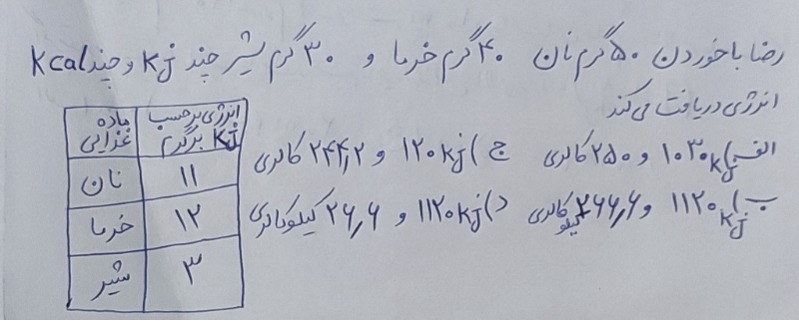 رضا با خوردن ۵۰ گرم نان ۴۰ گرم خرما و ۳۰ گرم شیر چند kj و چند kcal
انرژی دریافت می‌کند
الف) ۱۰۳۰ kj و ۲۵۰ کالری ج) ۱۲۰ kj و ۲۴۴٫۲ کالری
ب) ۱۱۲۰ kj و ۲۶۶٫۶ کیلو کالری د) ۱۱۲۰ kj و ۲۶٫۶ کیلوکالری
ماده غذایی انرژی برحسب kj برگرم
نان ۱۱
خرما ۱۲
شیر ۳